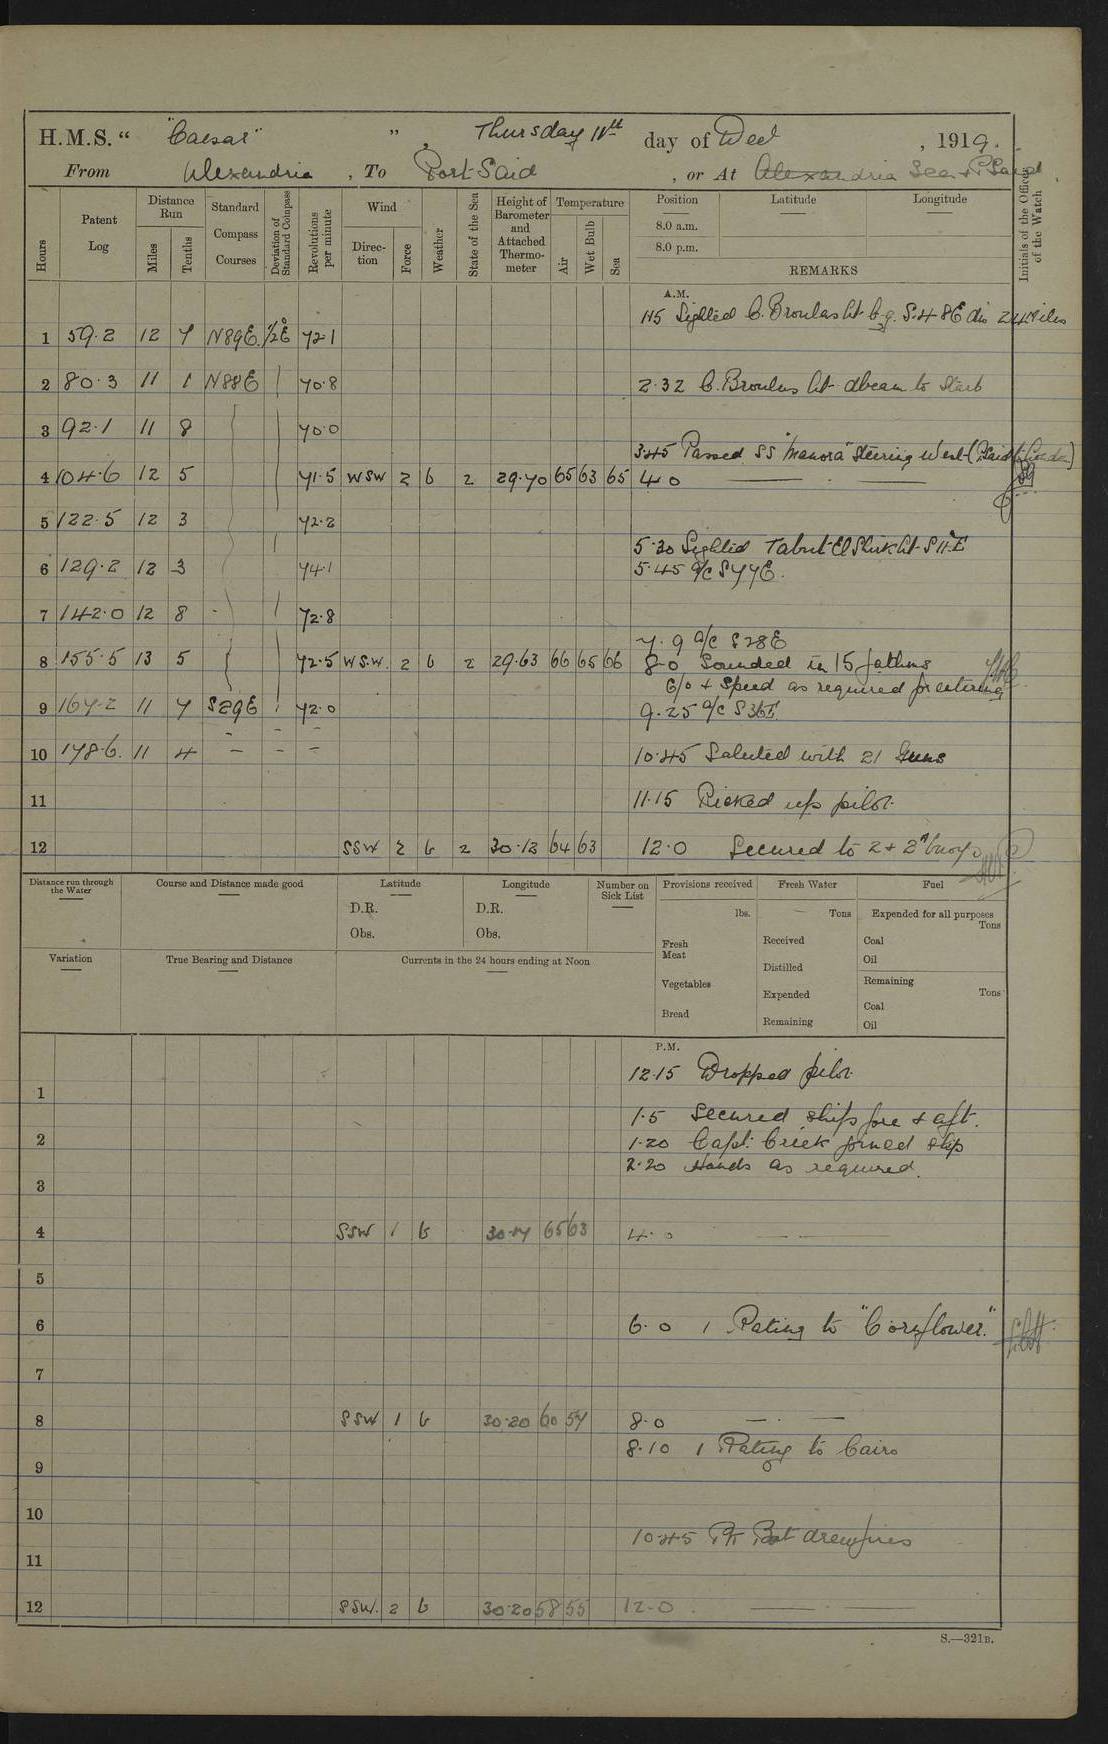 H.M.S. " "Caesar" " , Thursday 11th day of Dec , 1919.
From Alexandria , To Port Said , or At Alexandria Sea & P Said
Hours
Patent Log
Distance Run
Miles
Tenths
Standard Compass Courses
Deviation of Standard Compass
Revolutions per minute
Wind
Direction
Force
Weather
State of the Sea
Height of Barometer and Attached Thermometer
Temperature
Air
Wet Bulb
Sea
Position Latitude Longitude
8.0 a.m.
8.0 p.m.
REMARKS
Initials of the Officer of the Watch
A.M.
1.15 Sighted C. Broulos Lt. S.48E dis 24 Miles
1 59.2 12 7 N89E. 1/2°E 72.1
2 80.3 11 1 N88E 70.8 2.32 C. Broulos Lt abeam to Starb
3 92.1 11 8 70.0
3.45 Passed SS "Manora" Steering West
4 104.6 12 5 71.5 WSW 2 b 2 29.70 65 63 65 4.0
5 122.5 12 3 72.2
5.30 Sighted Lt S11E
6 129.2 12 3 74.1 5.45 a/c S77E.
7 142.0 12 8 72.8
7.9 a/c S28E
8 155.5 13 5 72.5 W.S.W. 2 b 2 29.63 66 65 66 8.0 Sounded in 15 fathms
C/o & Speed as required for entering
9 167.2 11 7 S29E 72.0 9.25 a/c S36E
10 178.6. 11 4 — — — 10.45 Saluted with 21 Guns
11 11.15 Picked up pilot.
12 SSW 2 b 2 30.13 64 63 12.0 Secured to 2 & 2A buoys
Distance run through the Water
Course and Distance made good
Latitude
Longitude
Number on Sick List
Provisions received
Fresh Water
Fuel
D.R. D.R.
Obs. Obs.
lbs. Tons
Expended for all purposes
Tons
Fresh Meat
Vegetables
Bread
Received
Distilled
Expended
Remaining
Coal
Oil
Remaining
Tons
Coal
Oil
Variation
True Bearing and Distance
Currents in the 24 hours ending at Noon
P.M.
12.15 Dropped pilot.
1
1.5 Secured ship fore & aft.
2 1.20 Capt: Crick joined ship
2.20 Hands as required.
3
4 SSW 1 b 30.17 65 63 4.0
5
6 6.0 1 Rating to "Cornflower."
7
8 SSW 1 b 30.20 60 57 8.0
8.10 1 Rating to Cairo
9
10
10.45 Pt Boat drew fires
11
12 SSW. 2 b 30.20 58 55 12.0
S.—321B.